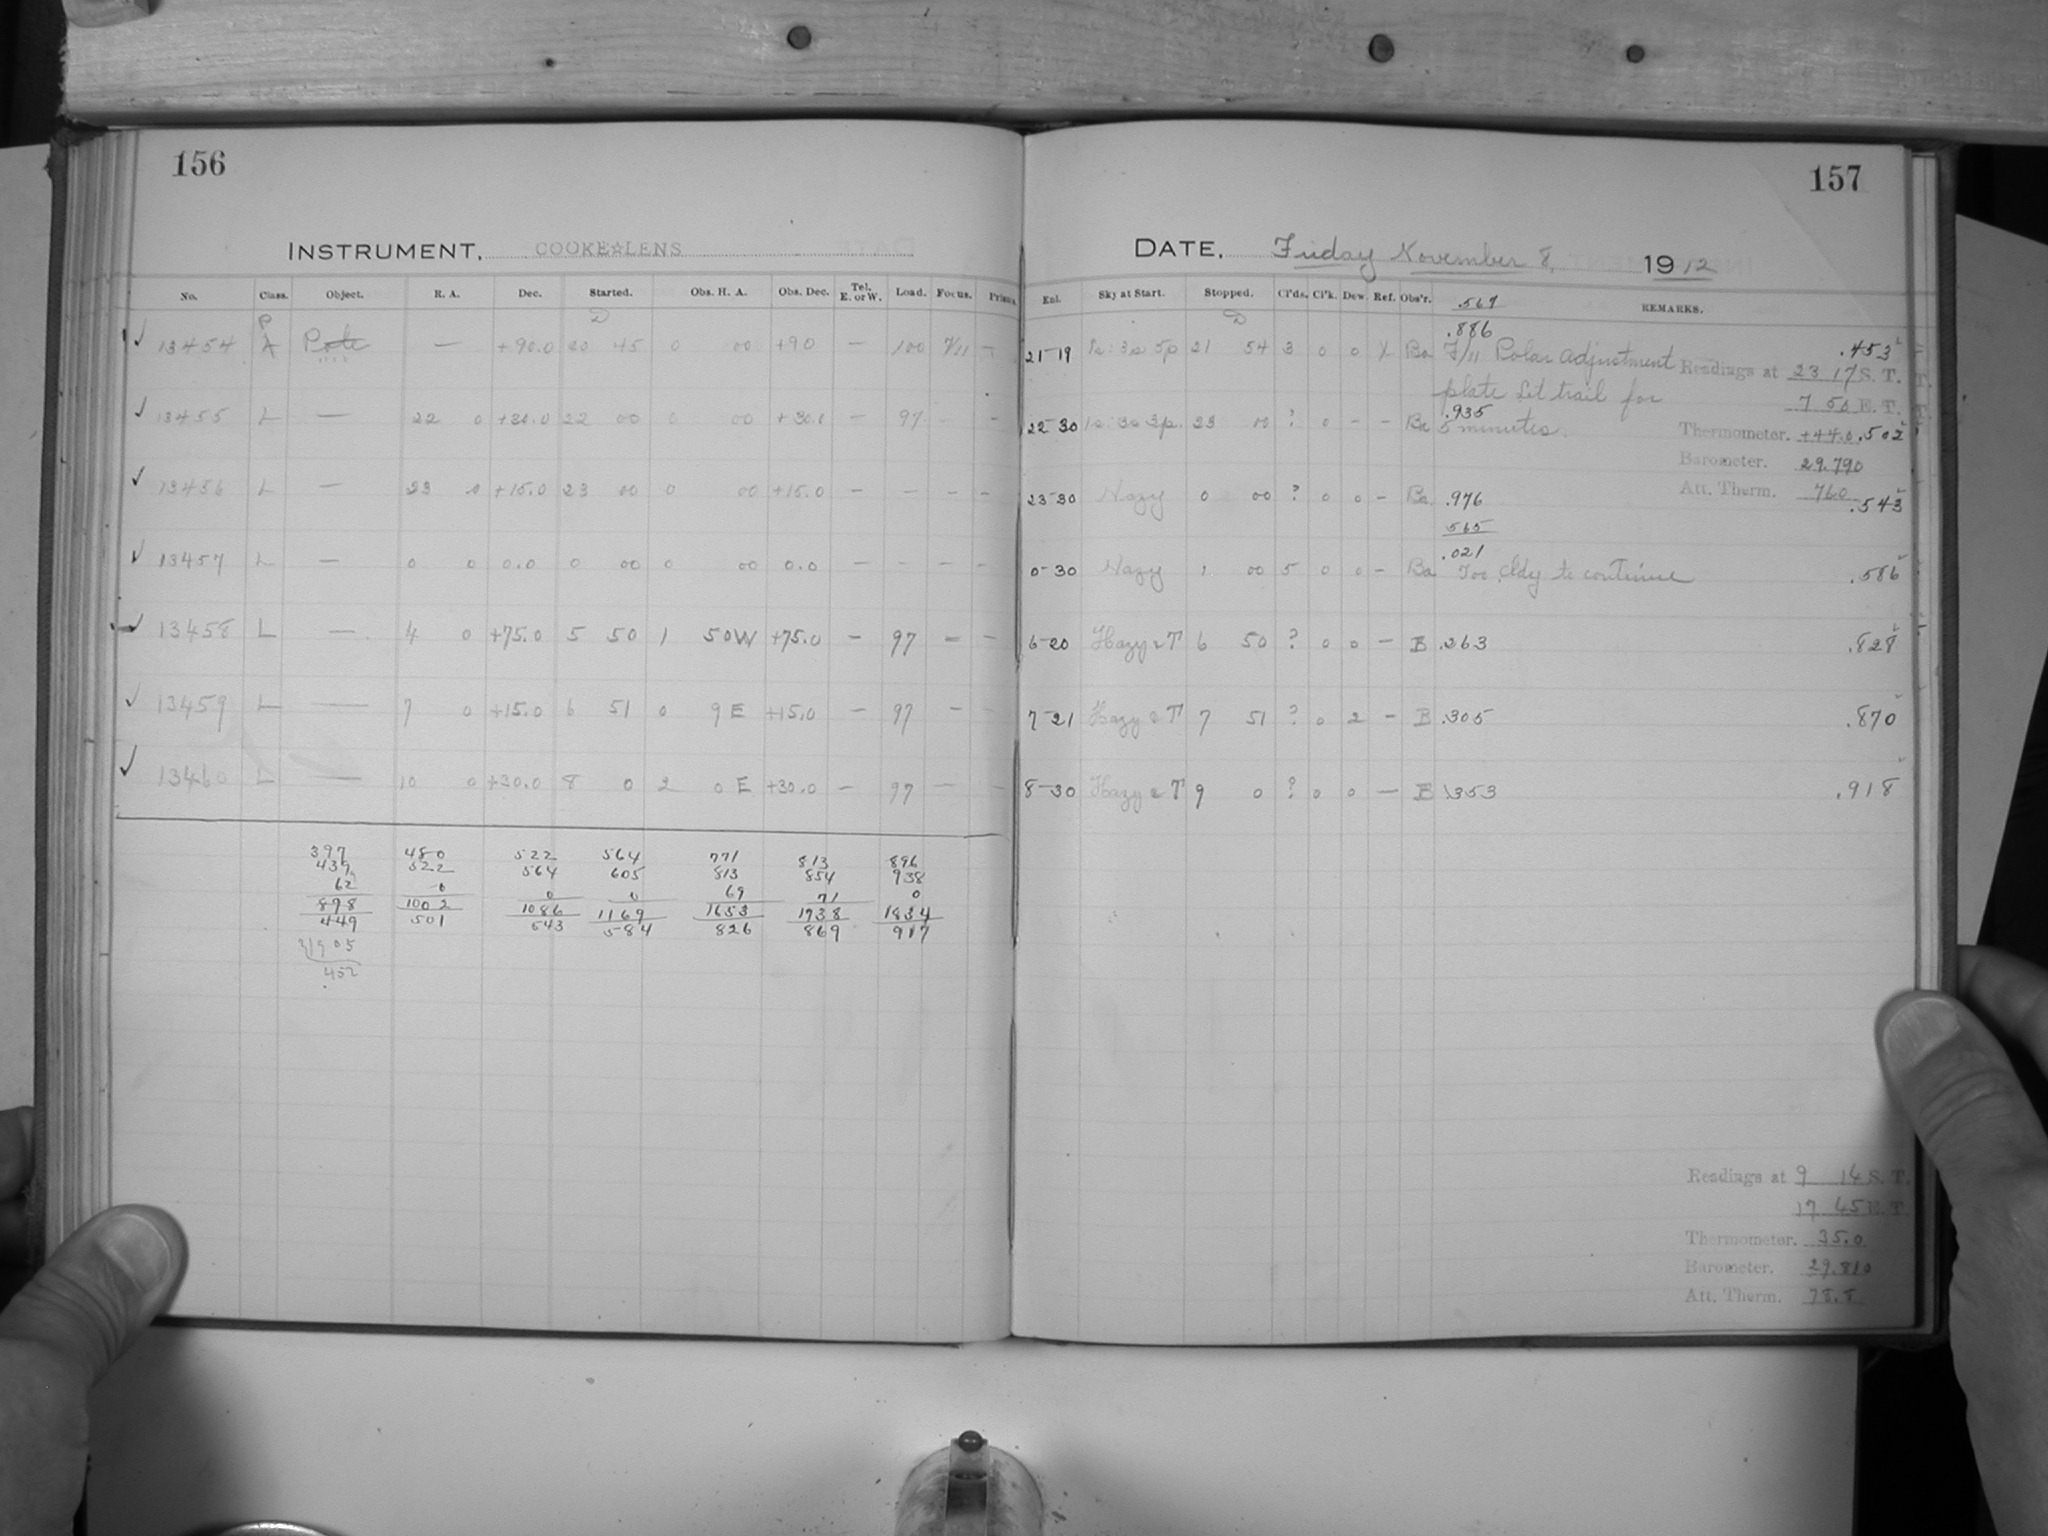 156
INSTRUMENT, COOKE☆LENS
No. Class. Object. R. A. Dec. Started. Obs. H. A. Obs. Dec. Tel. E. or W. Load. Focus. Prisms.
P D
13454 A Pole — +90.0 20 45 0 00 +90 — 100 F/11 —
13455 L — 22 0 +30.0 22 00 0 00 +30.0 — 97 - -
13456 L — 23 0 +15.0 23 00 0 00 +15.0 — — — —
13457 L — 0 0 0.0 0 00 0 00 0.0 — — — —
13458 L — 4 0 +75.0 5 50 1 50W +75.0 — 97 — —
13459 L — 7 0 +15.0 6 51 0 9 E +15.0 — 97 — —
13460 L — 10 0 +30.0 8 0 2 0 E +30.0 — 97 — —
397 480 522 564 771 813 896
439 522 564 605 813 854 938
62 0 0 0 69 71 0
898 1002 1086 1169 1653 1738 1834
449 501 543 584 826 869 917
2)905
452
157
DATE, Friday November 8, 1912
Enl. Sky at Start. Stopped. Cl'ds. Cl'k. Dew Ref. Obs'r. REMARKS.
.567
D .886
21-19 1s: 3s 5p 21 54 3 0 0 Ba F/11 Polar Adjustment .453
Readings at 23 17 S. T.
plate Let trail for
7 50 E. T.
.935
22-30 1s: 3s 3p 23 00 ? 0 - - Ba 5 minutes.
Thermometer. +44.0 .502
Barometer. 29.790
Att. Therm. 76.0
23-30 Hazy 0 00 ? 0 0 - Ba. .976 .543
.565
.021
0-30 Hazy 1 00 5 0 0 - Ba Too cldy to continue .586
6-20 Hazy & T 6 50 ? 0 0 — B .263 .828
7-21 Hazy & T 7 51 ? 0 2 — B .305 .870
8-30 Hazy & T 9 0 ? 0 0 — B .353 .918
Readings at 9 14 S. T.
17 45 E. T.
Thermometer. 35.0
Barometer. 29.810
Att. Therm. 78.8